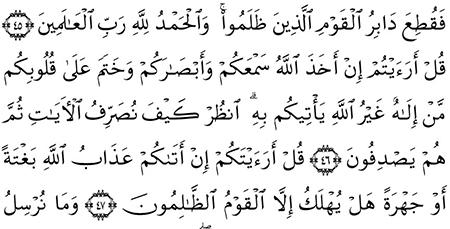 فَقُطِعَ دَابِرُ ٱلْقَوْمِ ٱلَّذِينَ ظَلَمُوا۟ ۚ وَٱلْحَمْدُ لِلَّهِ رَبِّ ٱلْعَـٰلَمِينَ ﴿٤٥﴾
قُلْ أَرَءَيْتُمْ إِنْ أَخَذَ ٱللَّهُ سَمْعَكُمْ وَأَبْصَـٰرَكُمْ وَخَتَمَ عَلَىٰ قُلُوبِكُم
مَّنْ إِلَـٰهٌ غَيْرُ ٱللَّهِ يَأْتِيكُم بِهِ ۗ ٱنظُرْ كَيْفَ نُصَرِّفُ ٱلْـَٔايَـٰتِ ثُمَّ
هُمْ يَصْدِفُونَ ﴿٤٦﴾ قُلْ أَرَءَيْتَكُمْ إِنْ أَتَىٰكُمْ عَذَابُ ٱللَّهِ بَغْتَةً
أَوْ جَهْرَةً هَلْ يُهْلَكُ إِلَّا ٱلْقَوْمُ ٱلظَّـٰلِمُونَ ﴿٤٧﴾ وَمَا نُرْسِلُ